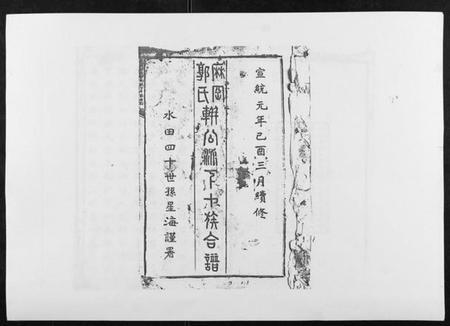 宣統元年己酉三月續修
麻岡
郭氏
耕公派下十族合譜
水田四十世孫星海謹署